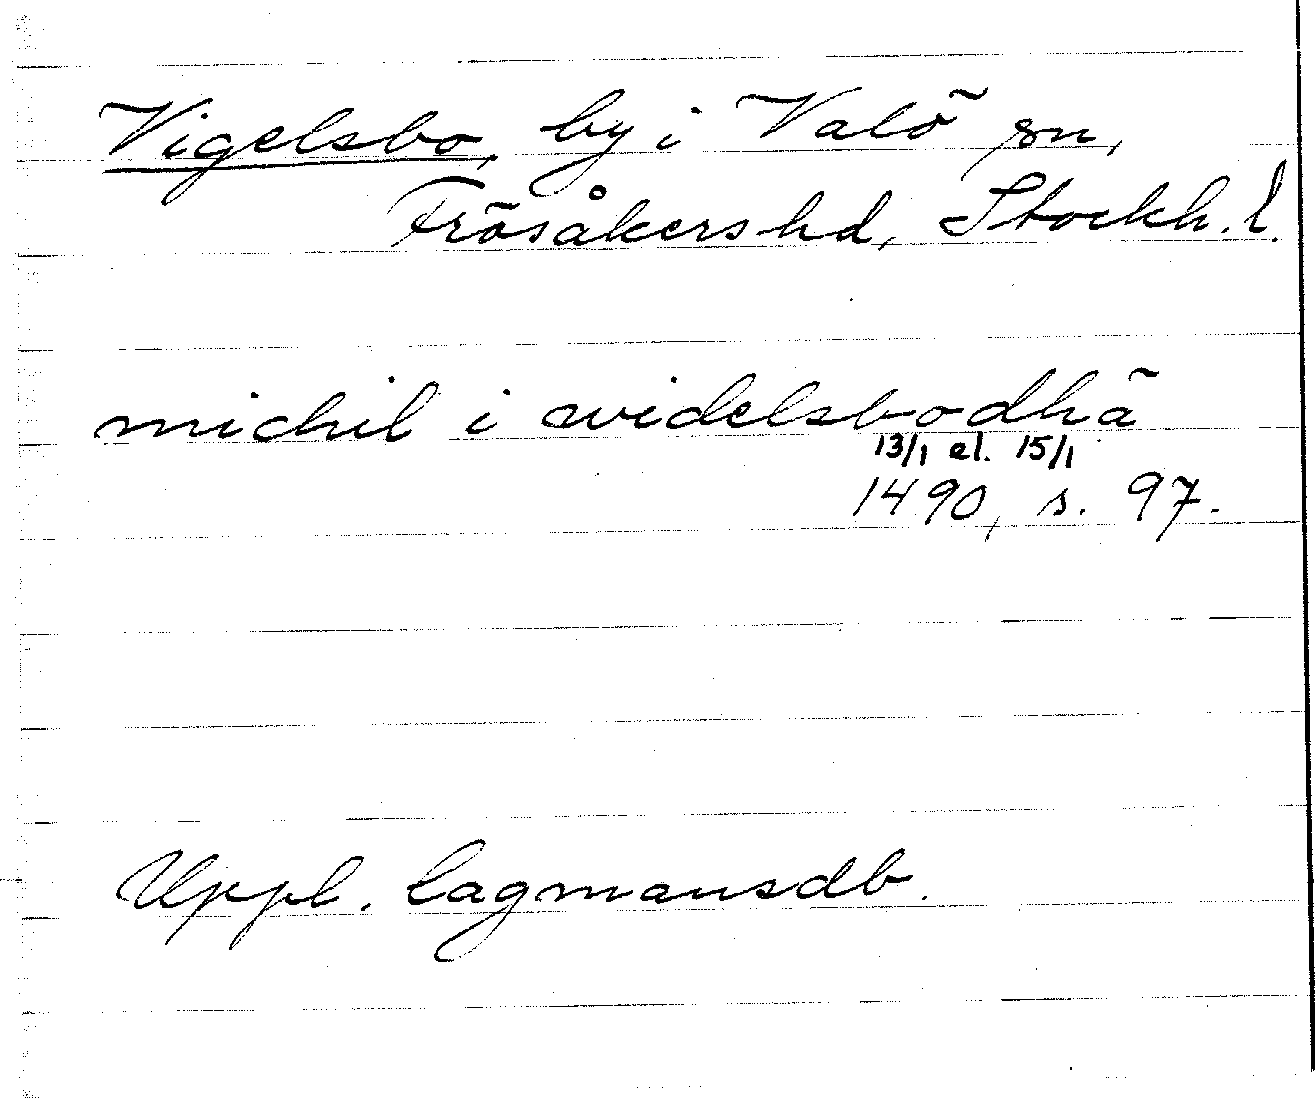 Vigelsbo, by i Valö sn,
Frösåkers hd, Stockh. l.
michil i widelsbodhä
13/1 el. 15/1
1490, s. 97.
Uppl. lagmansdb.